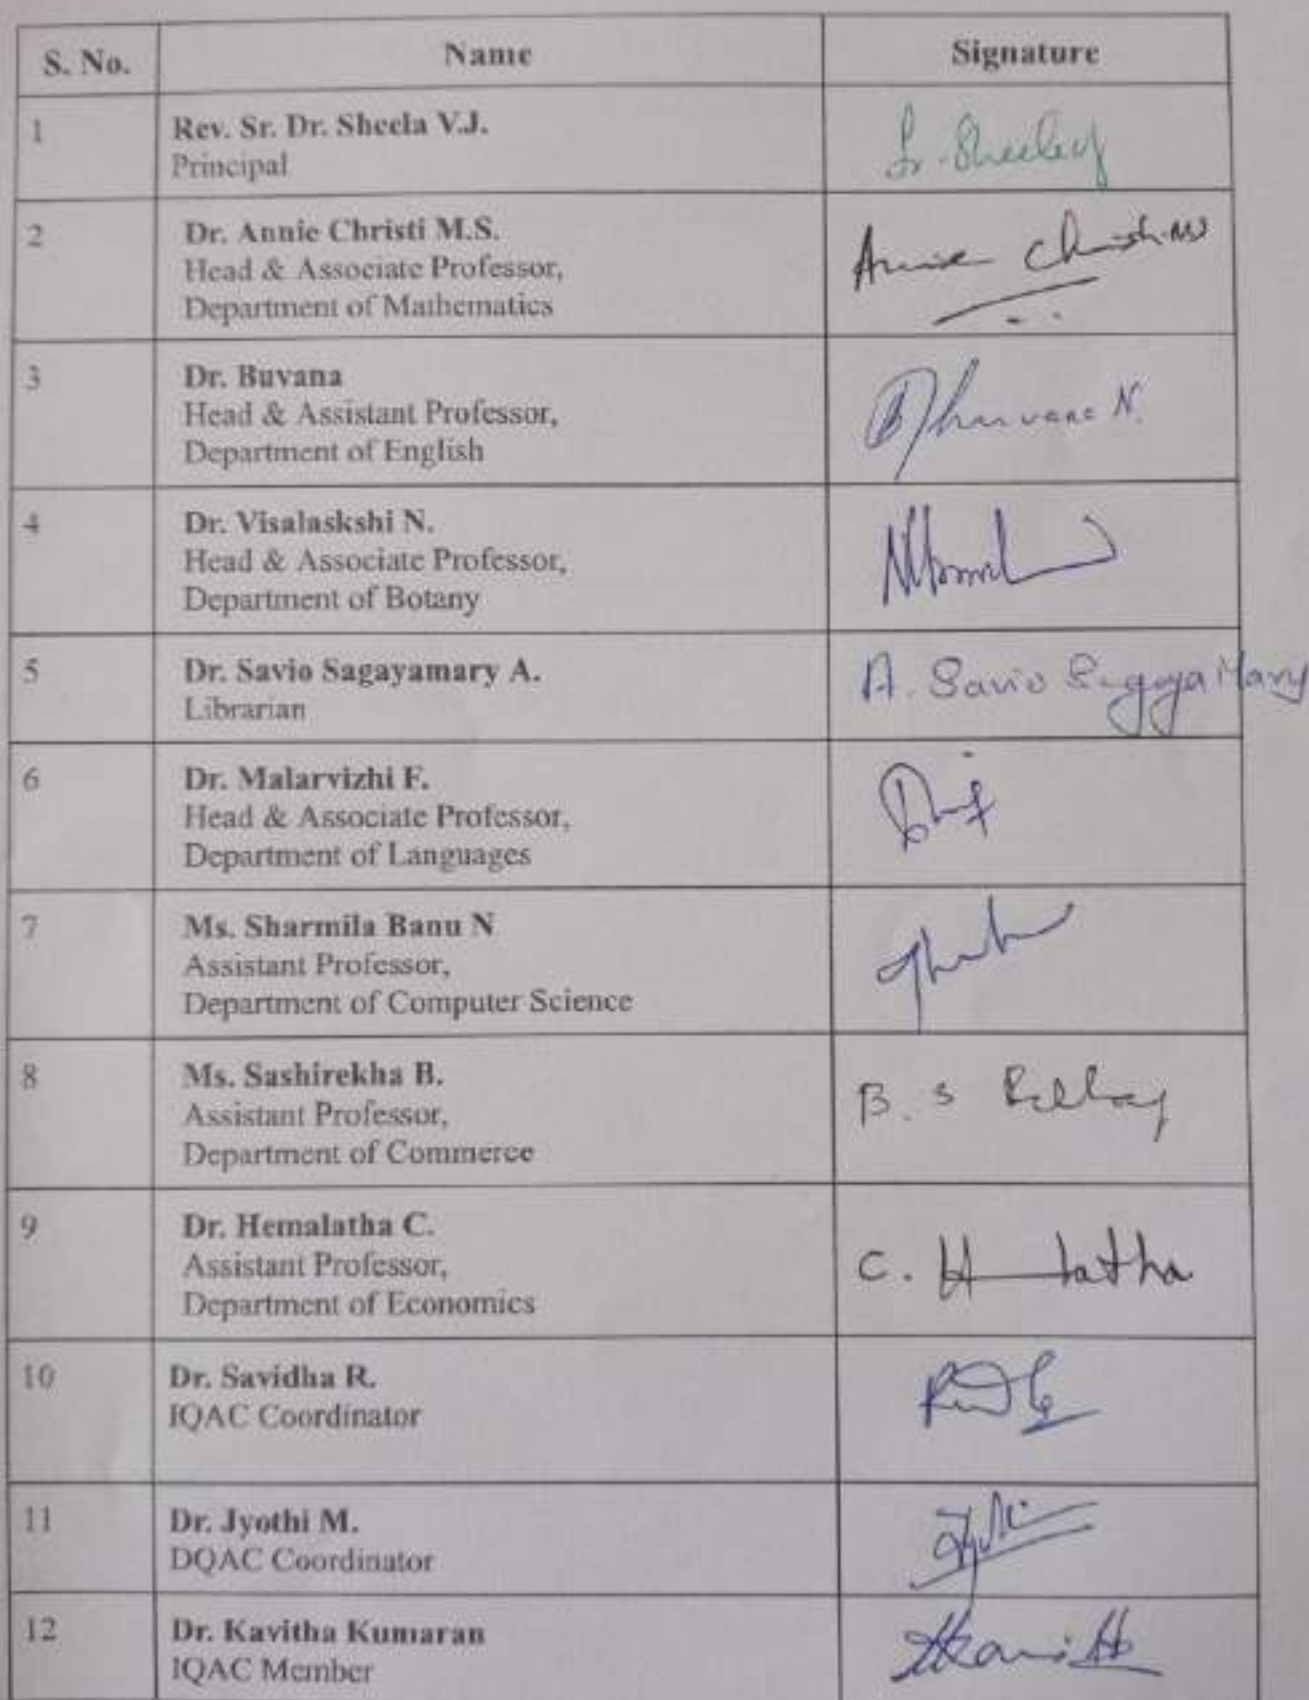 S. No. Name Signature
1 Rev. Sr. Dr. Sheela V.J.
Principal
Sr. Sheela
2 Dr. Annie Christi M.S.
Head & Associate Professor,
Department of Mathematics
Annie Christi MS
3 Dr. Buvana
Head & Assistant Professor,
Department of English
Bhuvana N.
4 Dr. Visalaskshi N.
Head & Associate Professor,
Department of Botany
5 Dr. Savio Sagayamary A.
Librarian
A. Savio Sagaya Mary
6 Dr. Malarvizhi F.
Head & Associate Professor,
Department of Languages
7 Ms. Sharmila Banu N
Assistant Professor,
Department of Computer Science
8 Ms. Sashirekha B.
Assistant Professor,
Department of Commerce
B. S
9 Dr. Hemalatha C.
Assistant Professor,
Department of Economics
C. H latha
10 Dr. Savidha R.
IQAC Coordinator
11 Dr. Jyothi M.
DQAC Coordinator
12 Dr. Kavitha Kumaran
IQAC Member